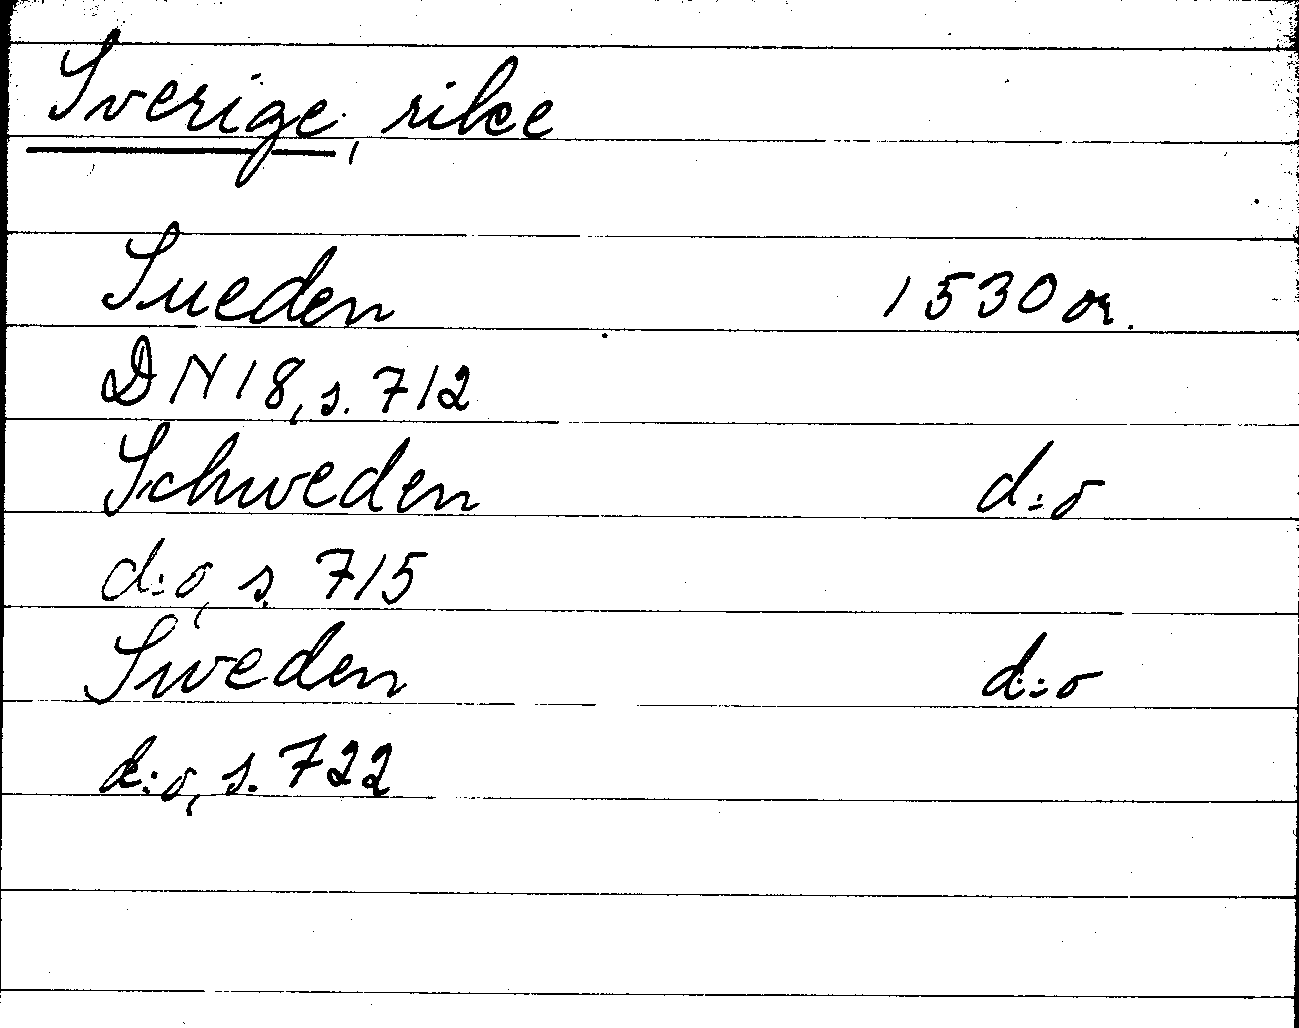 Sverige, rike
Sueden 1530 or.
DN 18, s. 712
Schweden d:o
d:o, s. 715
Sweden d:o
d:o, s. 722